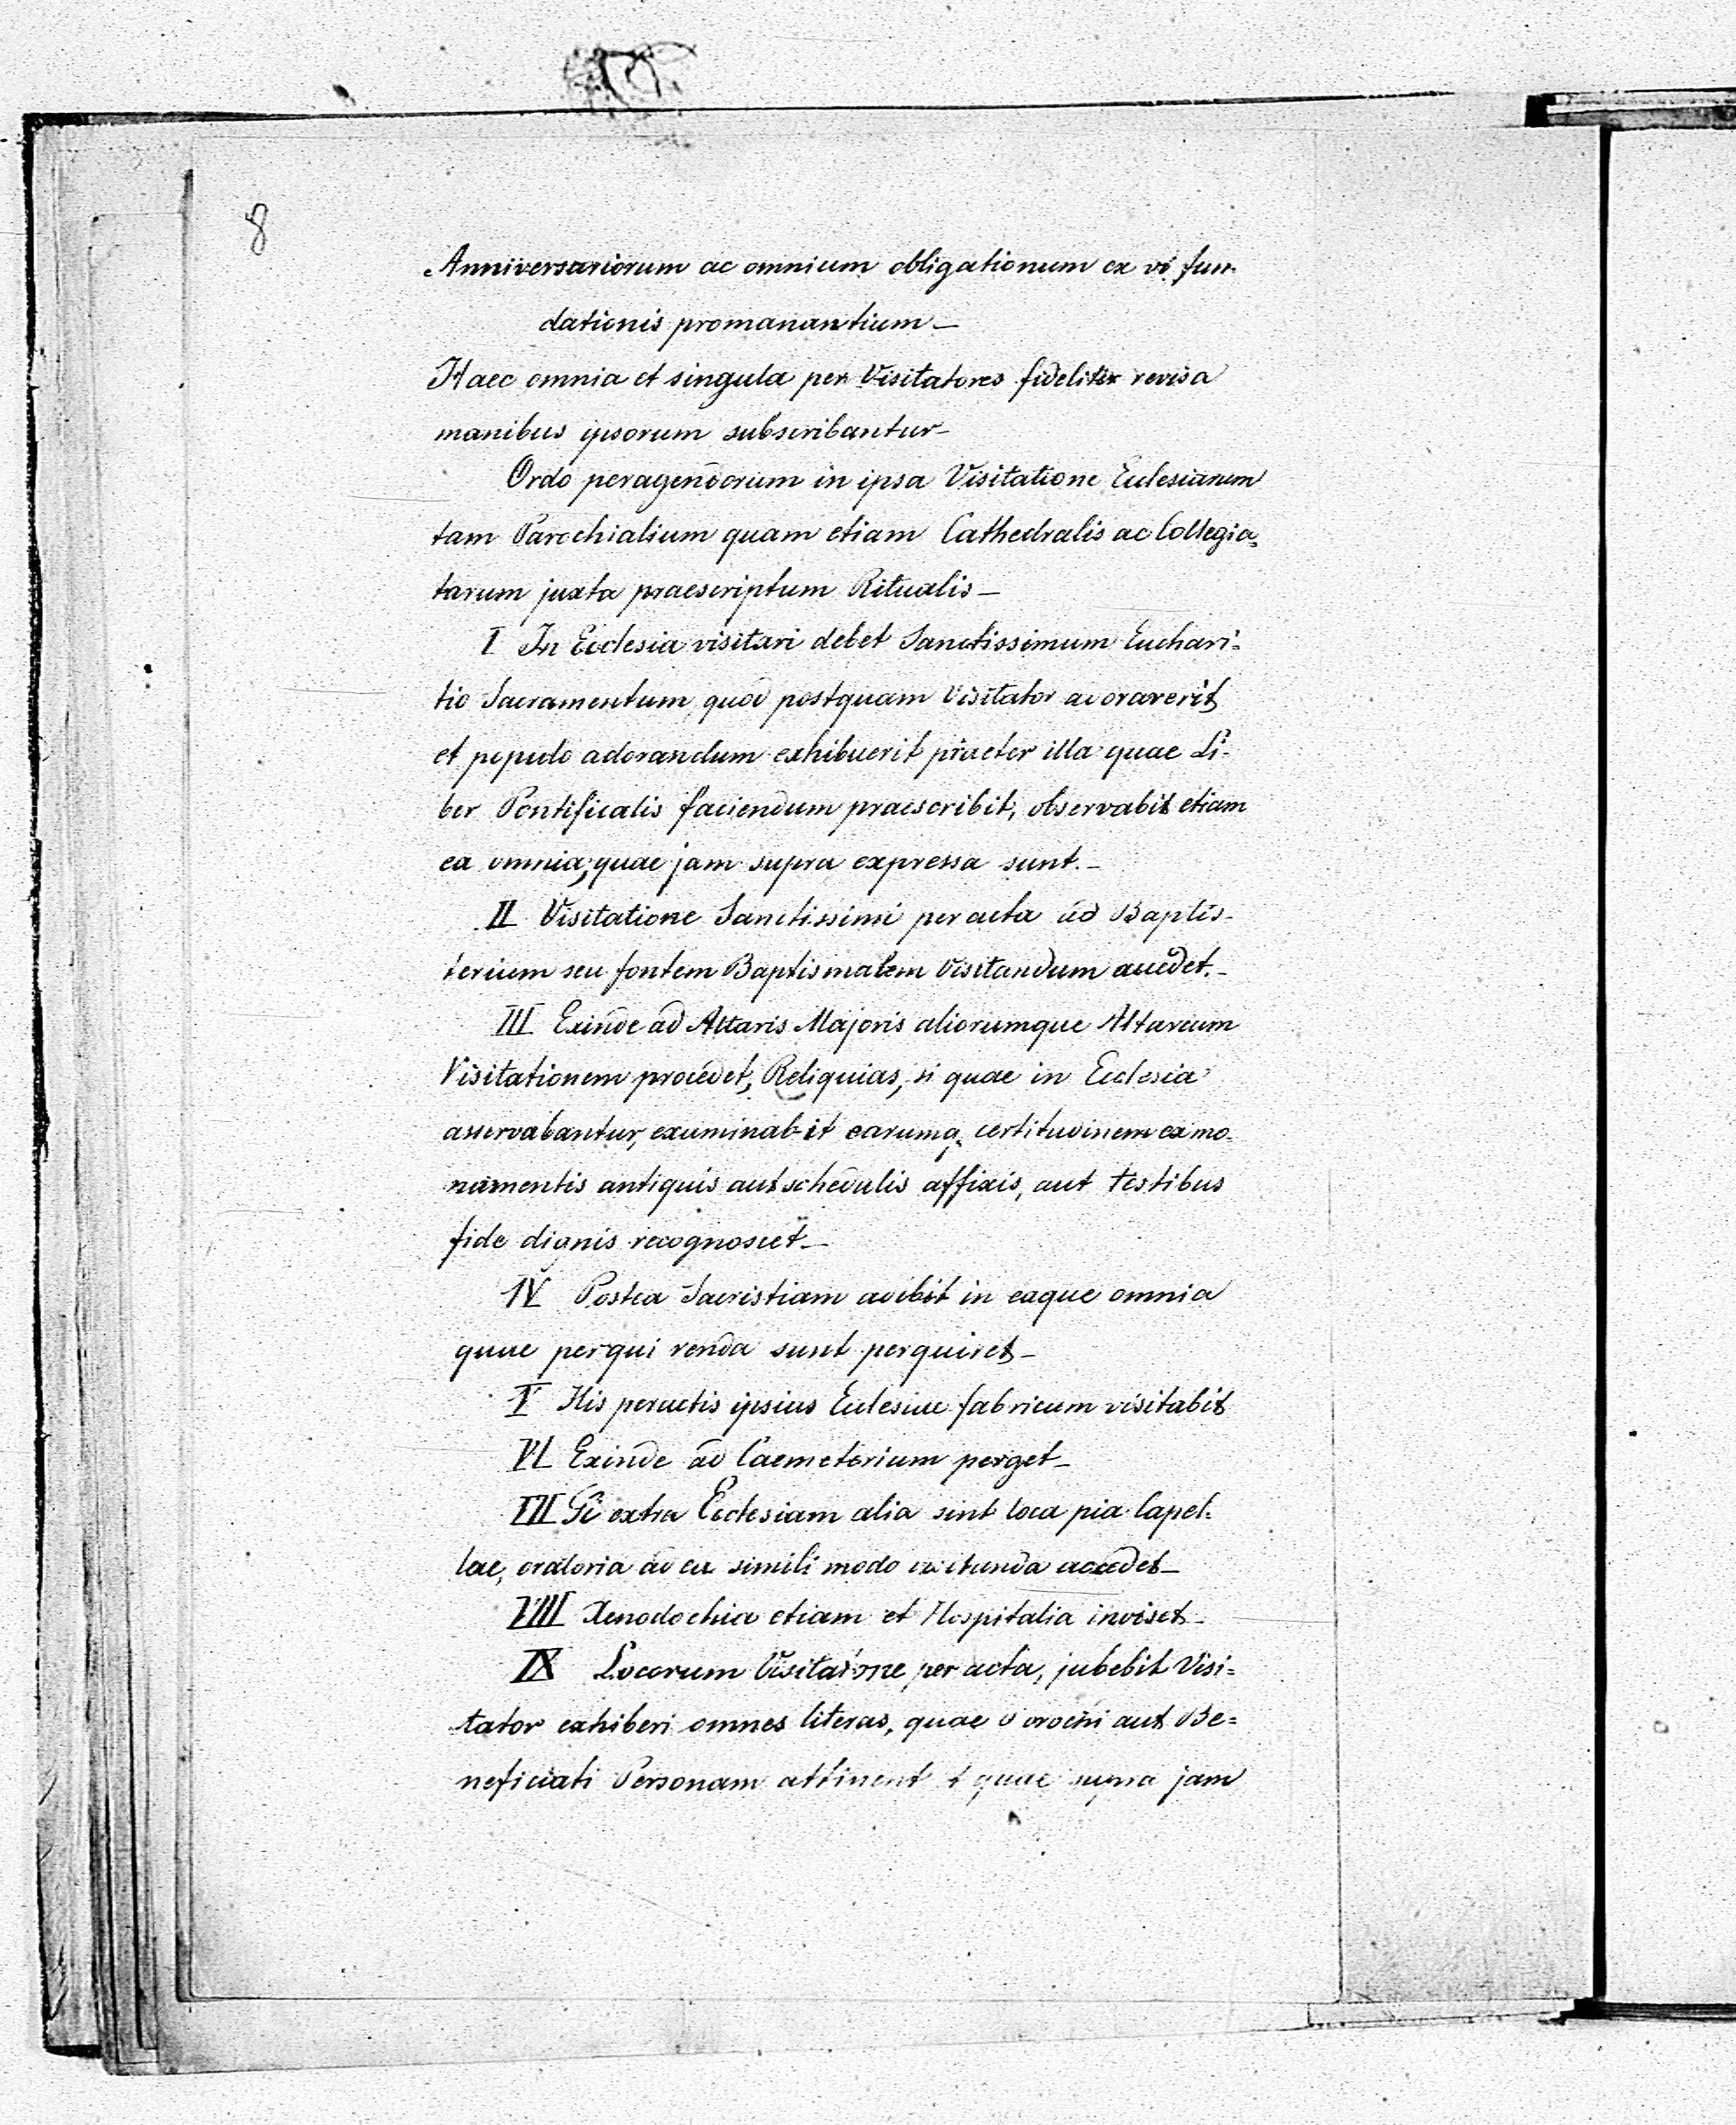 8
Anniversariorum ac omnium obligationum ex vi fun-
dationis promanantium –
Haec omnia et singula per Visitatores fideliter revisa
manibus ipsorum subscribantur –
Ordo peragendorum in ipsa Visitatione Ecclesiarum
tam Parochialium quam etiam Cathedralis ac Collegia=
tarum juxta praescriptum Ritualis –
I In Ecclesia visitari debet Sanctissimum Euchari=
tio Sacramentum, quod postquam Visitator adoraverit
et populo adorandum exhibuerit praeter illa quae Li-
ber Pontificalis faciendum praescribit, observabit etiam
ea omnia, quae jam supra expressa sunt. –
II Visitatione Sanctissimi peracta ad Baptis-
terium seu fontem Baptismalem visitandum accedet. –
III Exinde ad Altaris Majoris aliorumque Altarium
Visitationem procedet, Reliquias, si quae in Ecclesia
asservabantur, examinabit earumq. certitudinem ex mo-
numentis antiquis aut schedulis affixis, aut testibus
fide dignis recognoscet –
IV Postea Sacristiam adibit in eaque omnia
quae perqui renda sunt perquiret –
V His peractis ipsius Ecclesiae fabricam visitabit
VI Exinde ad Caemeterium perget –
VII Si extra Ecclesiam alia sint loca pia Capel=
lae, oratoria ad ea simili modo visitanda accedet –
VIII Xenodochia etiam et Hospitalia inviset –
IX Locorum Visitatione peracta, jubebit Visi=
tator exhiberi omnes literas, quae Parochi aut Be=
neficiati Personam attinent et quae supra jam